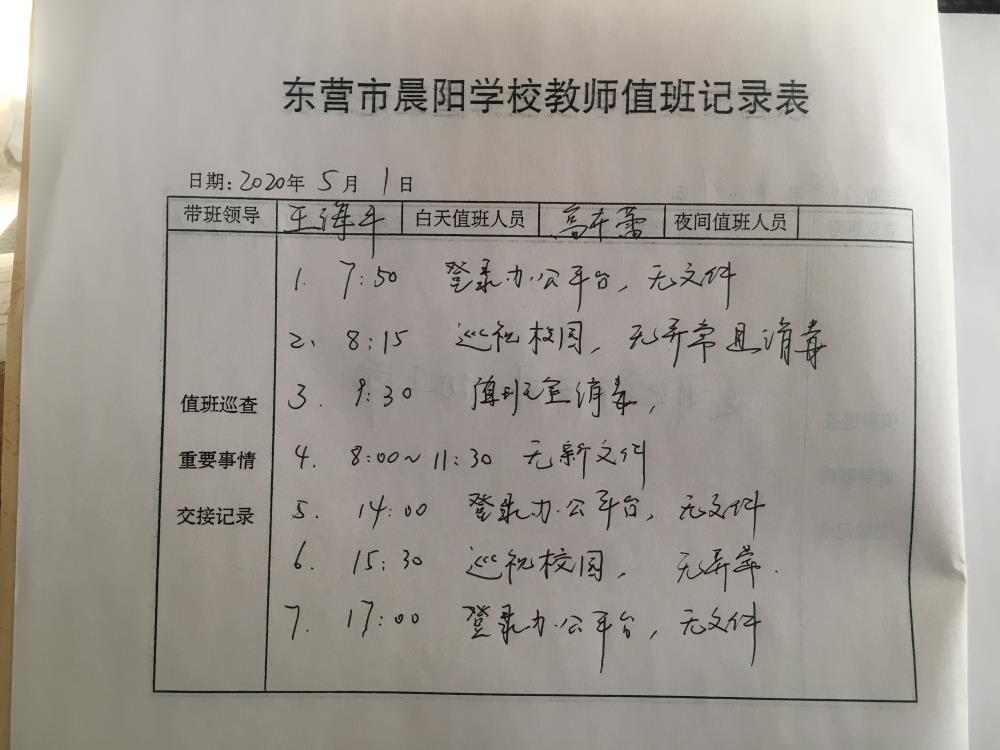 东营市晨阳学校教师值班记录表
日期:2020年 5月 1日
带班领导 王海平 白天值班人员 高冬蕾 夜间值班人员
值班巡查
重要事情
交接记录
1. 7:50 登录办公平台，无文件
2、8:15 巡视校园，无异常且消毒
3. 9:30 值班室消毒，
4. 8:00~11:30 无新文件
5. 14:00 登录办公平台，无文件
6. 15:30 巡视校园，无异常.
7. 17:00 登录办公平台，无文件